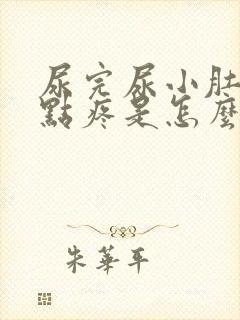 尿完尿小肚
點疼是怎麼
朱華平